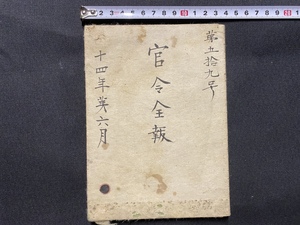 第五拾九号
官令全報
十四年第六月